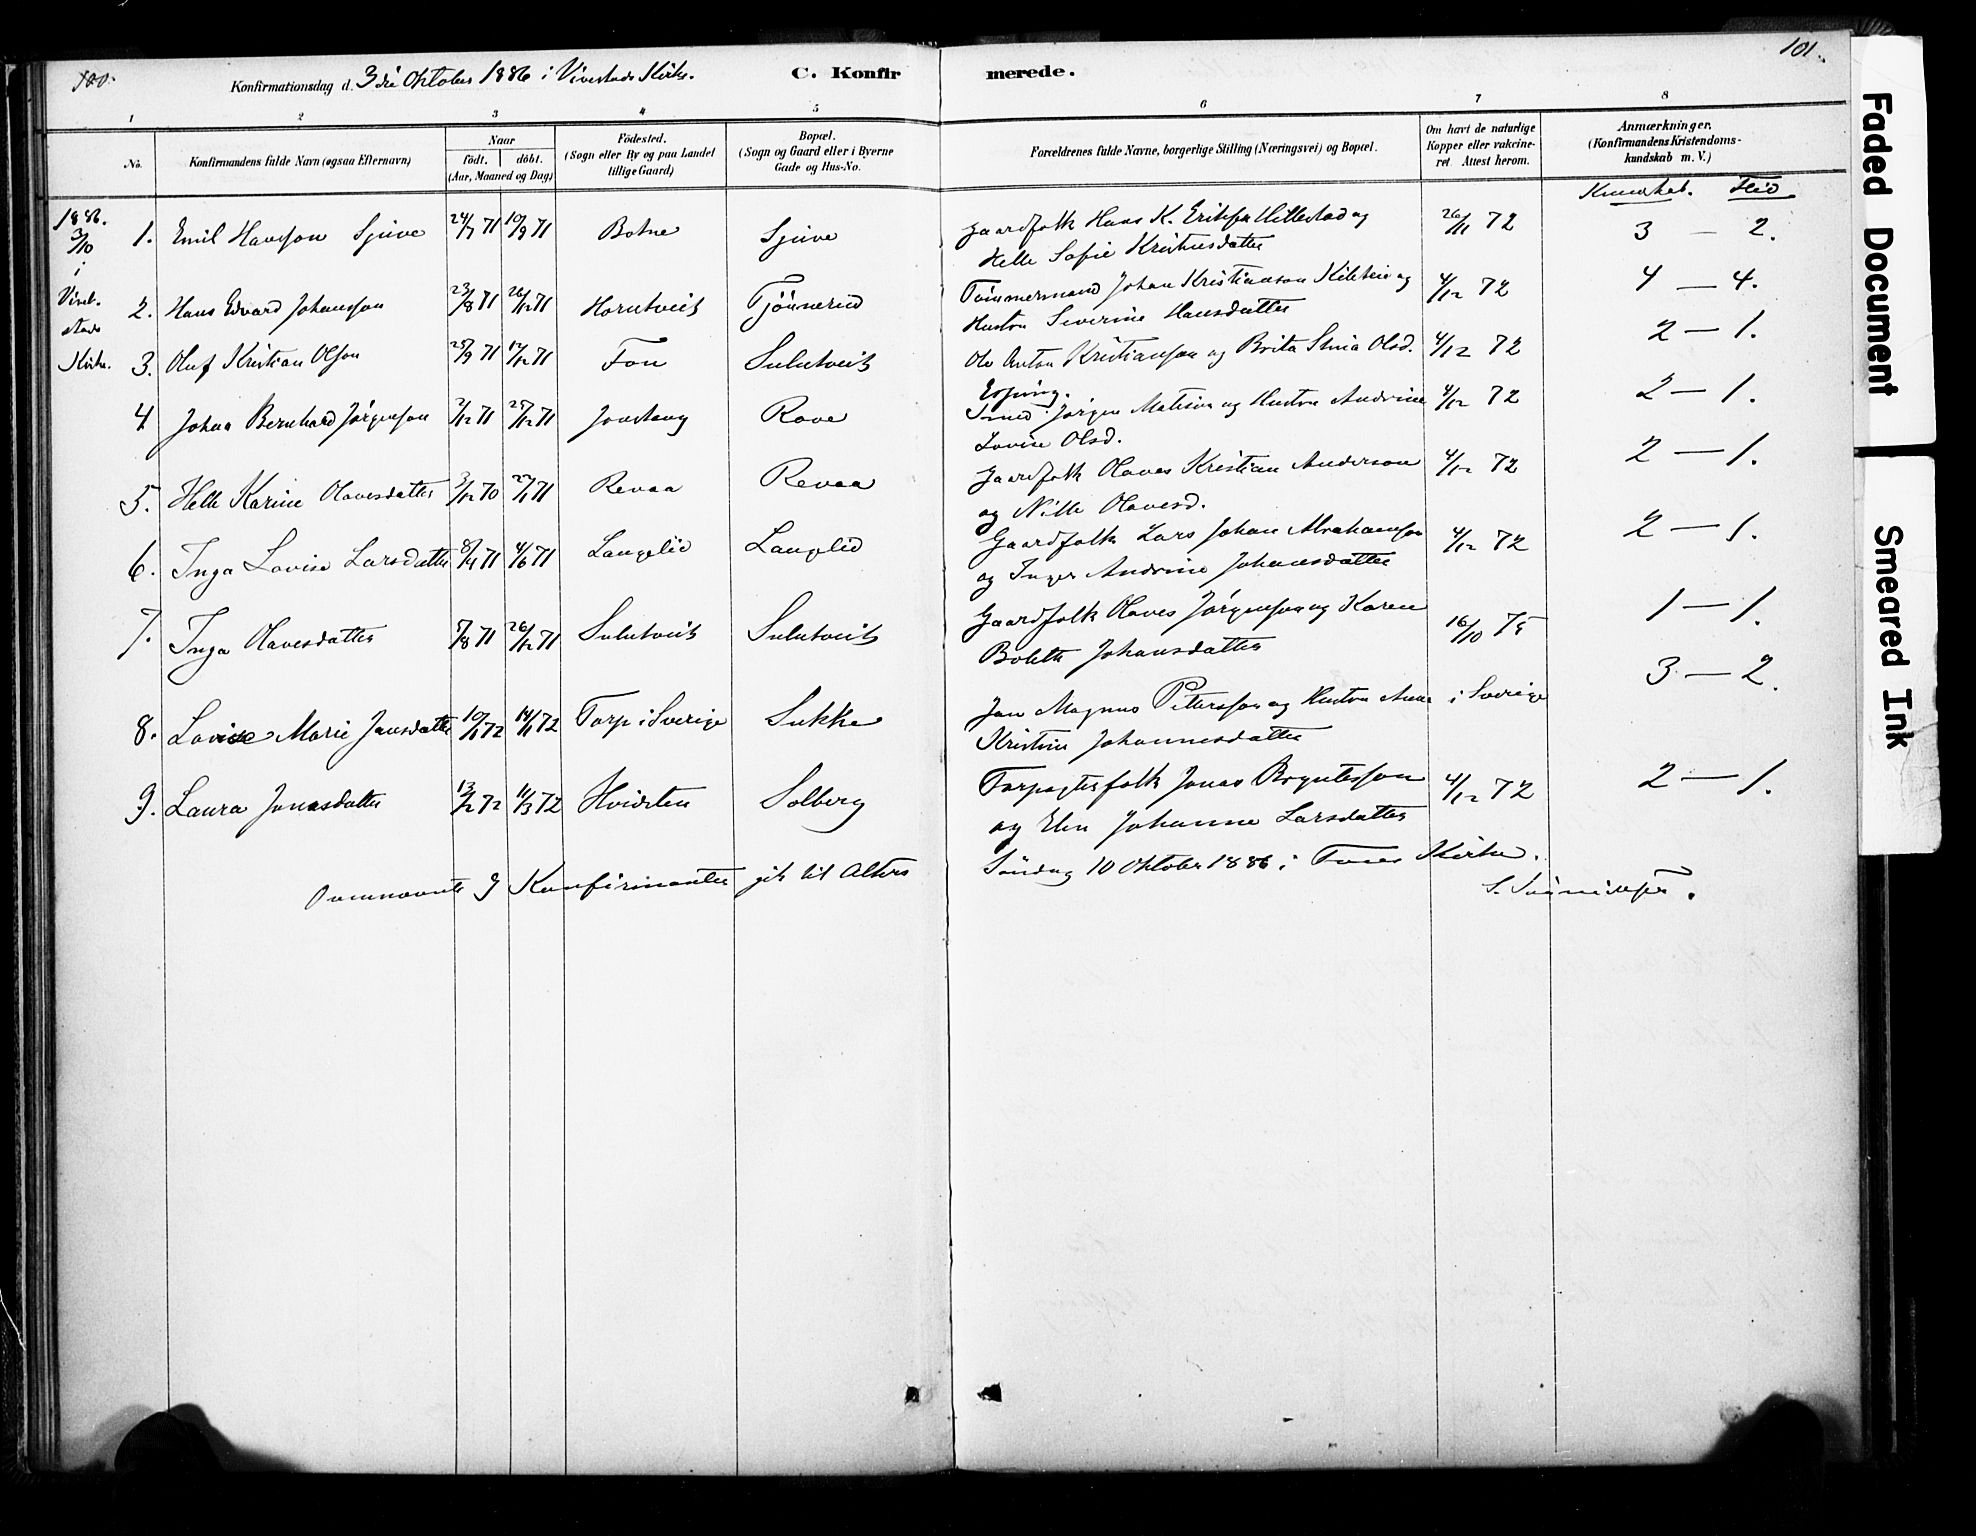 100.
101.
Konfirmationsdag d. 3die Oktober 1886 i Vivestads Kirke.
C. Konfirmerede.
1 2 3 4 5 6 7 8
No.
Konfirmandens fulde Navn (ogsaa Efternavn)
Naar
født. døbt.
(Aar, Maaned og Dag)
Fødested.
(Sogn eller By og paa Landet
tillige Gaard)
Bopæl.
(Sogn og Gaard eller i Byerne
Gade og Hus-No.
Forældrenes fulde Navne, borgerlige Stilling (Næringsvei) og Bopæl.
Om havt de naturlige
Kopper eller vaccine-
ret. Attest herom.
Anmærkninger.
(Konfirmandens Kristendoms-
kundskab m. V.)
Kundskab. Flid
1886.
3/10
i
Vivestads
Kirke.
1. Emil Hansson Sjuve 24/7 71 10/9 71 Botne Sjuve Gaardfolk Hans K. Eriksen Hillestad og 26/11 72 3 — 2.
Helle Sofie Kristensdatter
2. Hans Edvard Johansson 23/8 71 26/12 71 Horntveit Tjønnerød Tømmermand Johan Kristianson og 4/12 72 4 — 4.
Hustru Severine Hansdatter
3. Oluf Kristian Olsson 25/9 71 17/12 71 Fon Sulutveit Ole Anton Kristianson og Brita Olsd. 4/12 72 2 — 1.
4 Johan Bernhard Jørgenson 2/12 71 25/12 71 Rove Smed Jørgen Matison og Hustru Andrine 4/12 72 2 — 1.
Lovise Olsd.
5. Helle Karine Olavesdatter 3/12 70 27/1 71 Revaa Revaa Gaardfolk Olaves Kristian Anderson 4/12 72 2 — 1.
og Nille Olavesd.
6. Inga Lovise Larsdatter 8/4 71 4/6 71 Langelid Langelid Gaardfolk Lars Johan Abrahamson 4/12 72 2 — 1.
og Inger Andrine Johansdatter
7. Inga Olavesdatter 7/8 71 26/12 71 Sulutveit Sulutveit Gaardfolk Olaves Jørgenson og Karen 16/10 75 1 — 1.
Bolette Johansdatter
8. Lovise Marie Jansdatter 10/1 72 14/1 72 Torp i Sverige Sukke Jan Magnus Petersson og Hustru Anna i Sverige 3 — 2.
Kristine Johannesdatter
9. Laura Jonasdatter 13/2 72 11/3 72 Hvidsten Solberg Forpagterfolk Jonas Bryntesson 4/12 72 2 — 1.
og Elin Johanne Larsdatter
Ovennævnte 9 Konfirmanter gik til Alters Søndag 10 Oktober 1886 i Fons Kirke.
Faded Document
Smeared Ink